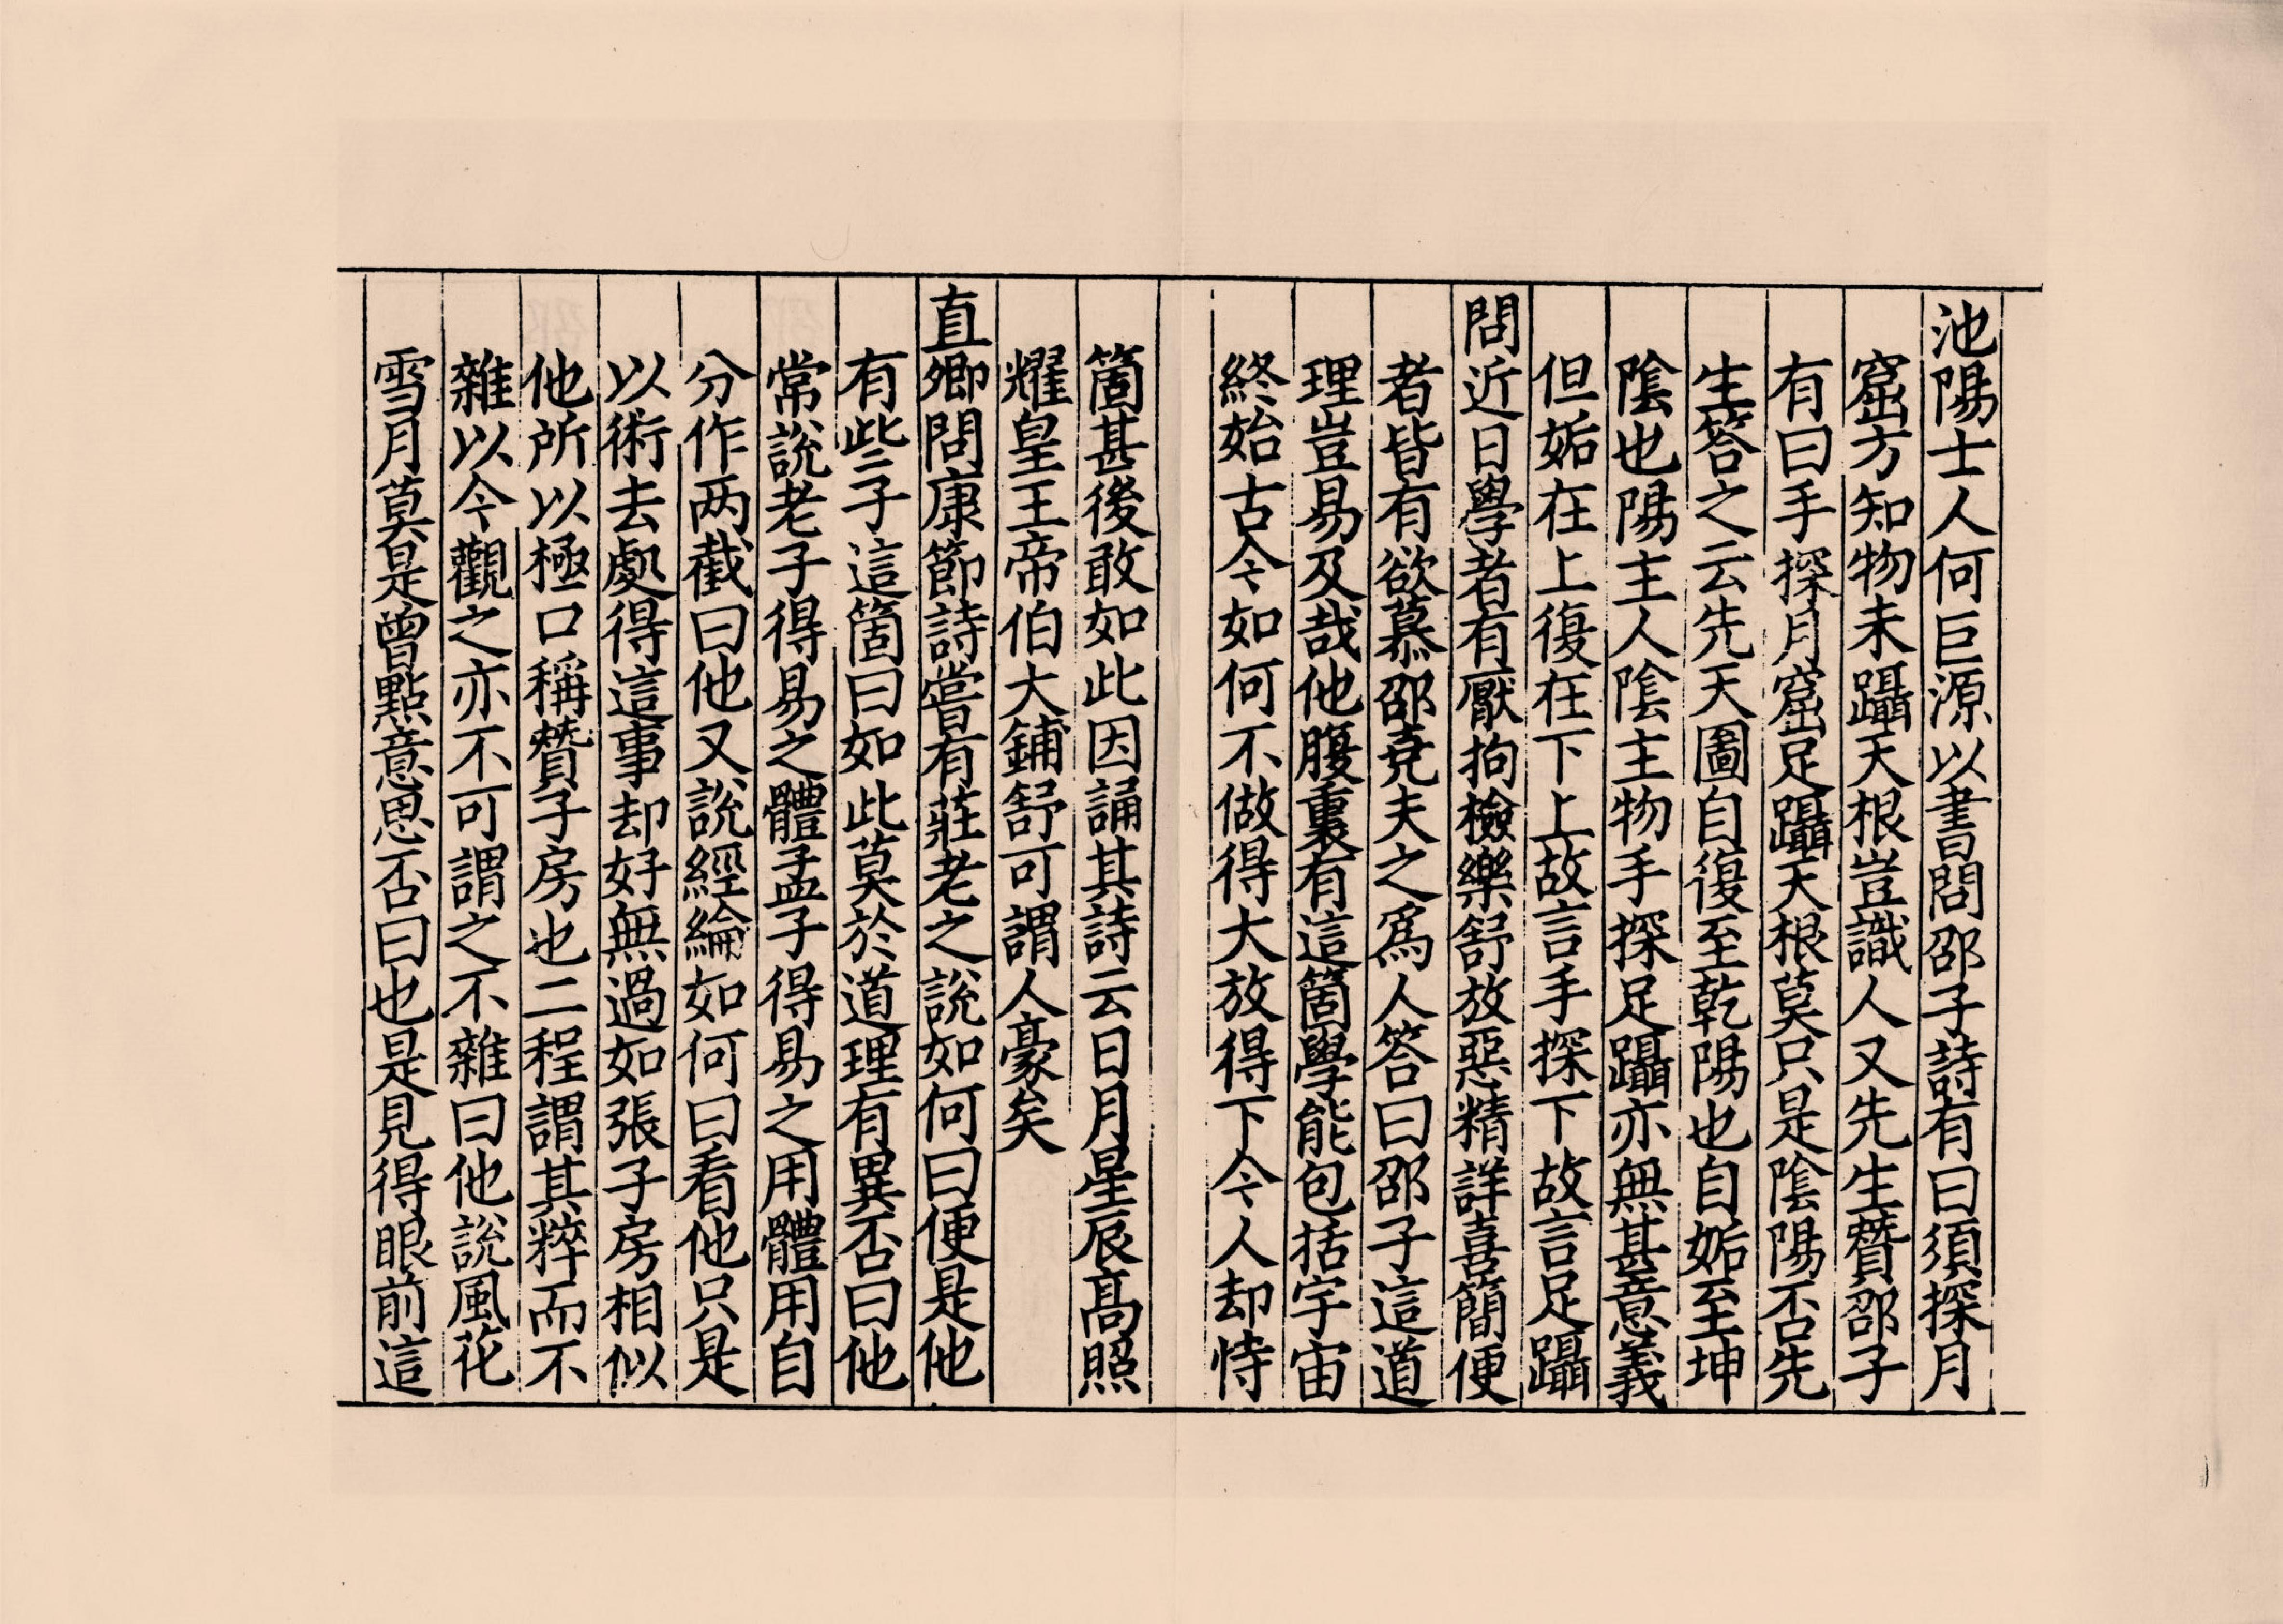 池陽士人何巨源以書問邵子詩有曰須探月
窟方知物未躡天根豈識人又先生贊邵子
有曰手探月窟足躡天根莫只是陰陽否先
生答之云先天圖自復至乾陽也自姤至坤
陰也陽主人陰主物手探足躡亦無甚意義
但姤在上復在下上故言手探下故言足躡
問近日學者有厭拘檢樂舒放惡精詳喜簡便
者皆有欲慕邵堯夫之爲人答曰邵子這道
理豈易及哉他腹裏有這箇學能包括宇宙
終始古今如何不做得大放得下今人却恃
箇甚後敢如此因誦其詩云日月星辰髙照
耀皇王帝伯大鋪舒可謂人豪矣
直卿問康節詩嘗有莊老之說如何曰便是他
有些子這箇曰如此莫於道理有異否曰他
常說老子得易之體孟子得易之用體用自
分作两截曰他又說經綸如何曰看他只是
以術去處得這事却好無過如張子房相似
他所以極口稱贊子房也二程謂其粹而不
雜以今觀之亦不可謂之不雜曰他說風花
雪月莫是曾點意思否曰也是見得眼前這